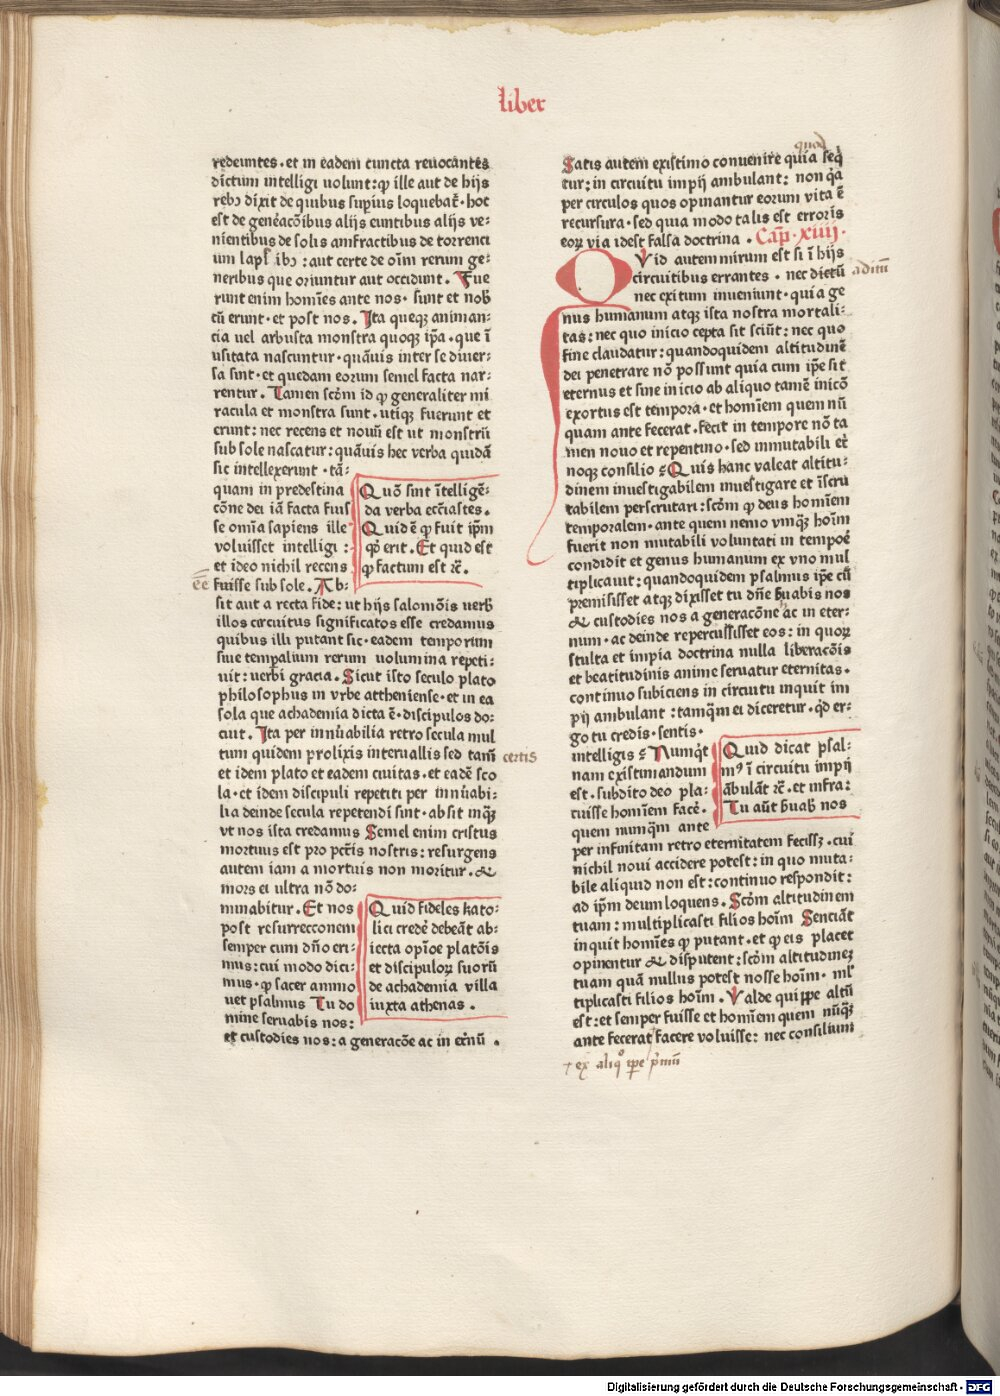 liber
redeuntes · et in eadem cuncta reuocantes
dictum intelligi uolunt: ꝙ ille aut de hijs
rebꝰ dixit de quibus supius loquebat̃ · hoc
est de geñacõibus alijs euntibus alijs ve-
nientibus de solis amfractibus de torrenci
um lapſ ibꝰ : aut certe de oĩm rerum ge-
neribus que oriuntur aut occidunt . Fue
runt enim homĩes ante nos · sunt et nob̃
cũ erunt · et post nos . Ita queqȝ animan-
cia uel arbusta monstra quoqȝ ip̃a · que ĩ
usitata nascuntur · quãuis inter se diuer-
sa sint · et quedam eorum semel facta nar-
rentur . Tamen scđm id ꝙ generaliter mi
racula et monstra sunt · utiqȝ fuerunt et
erunt: nec recens et nouũ est ut monstrũ
sub sole nascatur: quãuis hec verba quidã
sic intellexerunt · tã-
quam in predestina
cõne dei iã facta fuis
se omĩa sapiens ille
voluisset intelligi :
et ideo nichil recens
ẽẽ
fuisse sub sole . Ab-
Quõ sint ĩtelligẽ-
da verba eccĩastes .
Quid ẽ ꝙ fuit ip̃m
qđ erit . Et quid est
ꝙ factum est ꝛc̃ .
sit aut a recta fide: ut hijs salomõis uerb̃
illos circuitus significatos esse credamus
quibus illi putant sic · eadem temporum
siue temp̃alium rerum uolumina repeti-
uit: uerbi gracia . Sicut isto seculo plato
philosophus in vrbe attheniense · et in ea
sola que achademia dicta ẽ · discipulos do-
cuit . Ita per innũabilia retro secula mul
tum quidem prolixis interuallis sed tam̃
certis
et idem plato et eadem ciuitas · et eadẽ sco
la · et idem discipuli repetiti per innũabi-
lia deinde secula repetendi sint · absit inqȝ
vt nos ista credamus Semel enim cristus
mortuus est pro pctĩs nostris: resurgens
autem iam a mortuis non moritur . &
mors ei ultra nõ do-
minabitur . Et nos
post resurrecconem
semper cum dño eri-
mus: cui modo dici-
mus · ꝙ sacer ammo
uet psalmus Tu do
mine seruabis nos:
Quid fideles kato-
lici credẽ debeãt ab-
iecta opĩoe platõis
et discipuloꝝ suorũ
de achademia villa
iuxta athenas .
et custodies nos: a generacõe ac in et̃nũ .
quod
Satis autem existimo conuenire quia seq̃
tur: in circuitu impij ambulant: non q̃a
per circulos quos opinantur eorum vita ẽ
recursura · sed quia modo talis est erroris
eoꝝ via idest falsa doctrina . Cap̃ · xiiij ·
QVid autem mirum est si ĩ hijs
circuitibus errantes · nec dictũ
aditũ
nec exitum inueniunt · quia ge
nus humanum atqȝ ista nostra mortali-
tas: nec quo inicio cepta sit sciũt: nec quo
fine claudatur: quandoquidem altitudinẽ
dei penetrare nõ possunt quia cum ip̃e sit
eternus et sine inicio ab aliquo tamẽ inicõ
exortus est tempora · et homĩem quem nũ
quam ante fecerat · fecit in tempore nõ ta
men nouo et repentino · sed inmutabili et̃
noqȝ consilio : Quis hanc valeat altitu-
dinem inuestigabilem inuestigare et ĩscru
tabilem perscrutari: scđm ꝙ deus homĩem
temporalem · ante quem nemo vmqȝ hoĩm
fuerit non mutabili voluntati in tempoẽ
condidit et genus humanum ex vno mul
tiplicauit: quandoquidem psalmus ip̃e cũ
premisisset atqȝ dixisset tu dñe ẜuabis nos
& custodies nos a generacõne ac in eter-
num · ac deinde repercussisset eos: in quoꝝ
stulta et impia doctrina nulla liberacõis
et beatitudinis anime seruatur eternitas .
continuo subiciens in circuitu inquit im
pij ambulant : tamq̃m ei diceretur · qđ er-
go tu credis · sentis ·
intelligis : Numq̃t
nam existimandum
est · subdito deo pla-
cuisse homĩem facẽ .
quem numq̃m ante
Quid dicat psal-
mꝰ ĩ circuitu impij
ãbulãt ꝛc̃ · et infra:
Tu aũt ẜuab̃ nos
per infinitam retro eternitatem fecissȝ · cui
nichil noui accidere potest: in quo muta-
bile aliquid non est: continuo respondit:
ad ip̃m deum loquens . Scđm altitudinem
tuam: multiplicasti filios hoĩm Senciãt
inquit homĩes ꝙ putant · et ꝙ eis placet
opinentur & disputent: scđm altitudineȝ
tuam quã nullus potest nosse hoĩm · ml̃
tiplicasti filios hoĩm . Valde quippe altũ
est: et semper fuisse et homĩem quem nũqȝ
ante fecerat facere voluisse: nec consilium
+ ex aliqͦ ip̃e p̃mũ
Digitalisierung gefördert durch die Deutsche Forschungsgemeinschaft - DFG